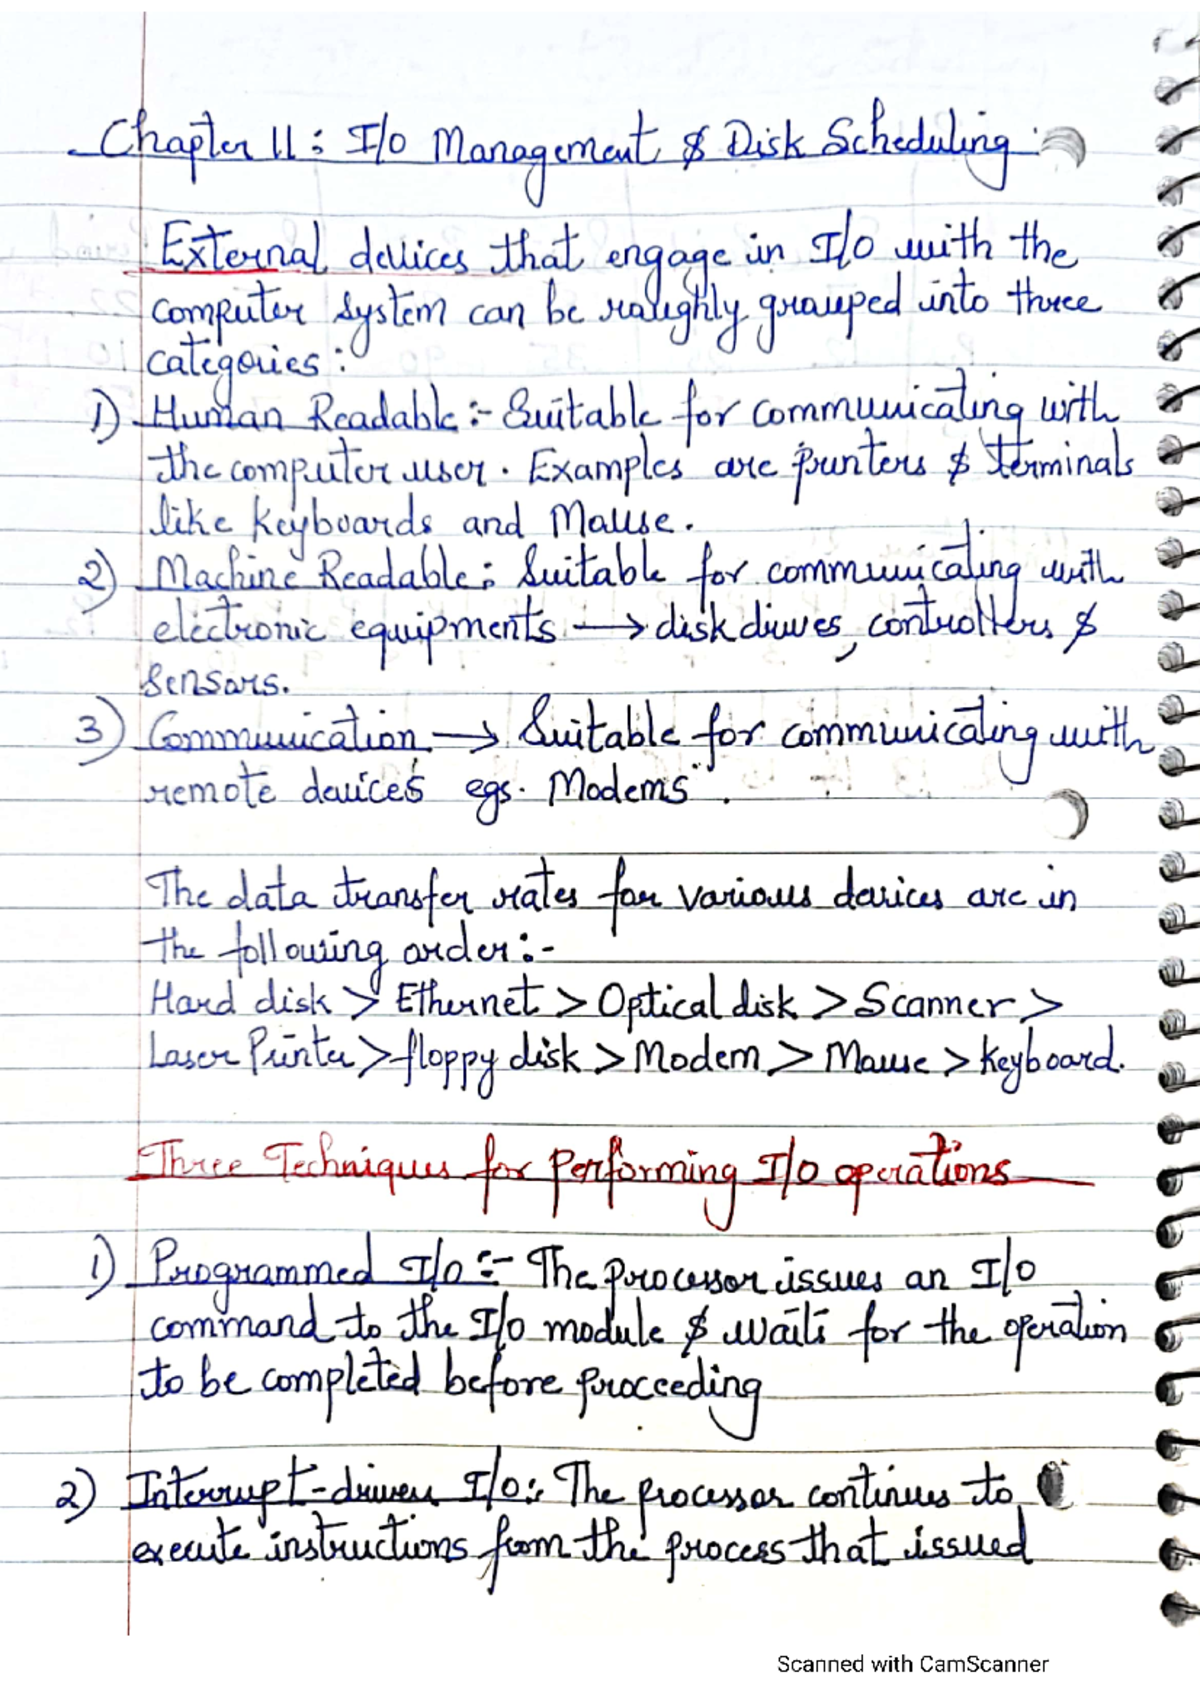 Chapter 11: I/O Management & Disk Scheduling:
External devices that engage in I/O with the
computer system can be roughly grouped into three
categories:
1) Human Readable :- Suitable for communicating with
the computer user. Examples are printers & terminals
like keyboards and Mouse.
2) Machine Readable: Suitable for communicating with
electronic equipments → disk drives, controllers &
Sensors.
3) Communication → Suitable for communicating with
remote devices egs. Modems.
The data transfer rates for various devices are in
the following order:-
Hard disk > Ethernet > Optical disk > Scanner >
Laser Printer > floppy disk > Modem > Mouse > Keyboard.
Three Techniques for Performing I/O operations
1) Programmed I/O :- The processor issues an I/O
command to the I/O module & waits for the operation
to be completed before proceeding
2) Interrupt-driven I/O: The processor continues to
execute instructions from the process that issued
Scanned with CamScanner